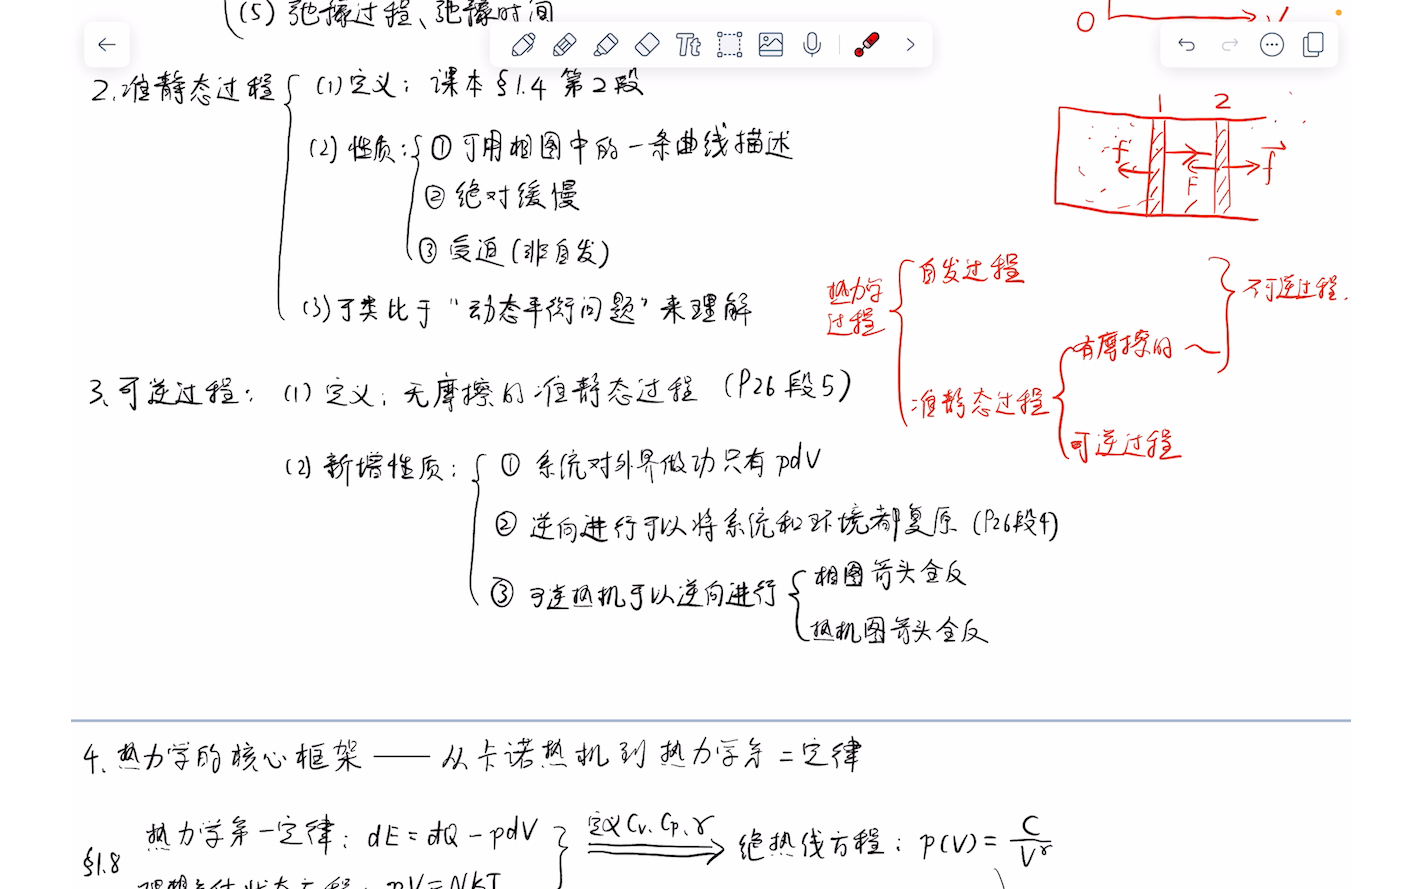 (5) 弛豫过程、弛豫时间
O
V
Tt
2.准静态过程
(1)定义：课本§1.4 第2段
(2)性质：①可用相图中的一条曲线描述
②绝对缓慢
③受迫(非自发)
(3)可类比于“动态平衡问题”来理解
1 2
f F f
热力学过程
自发过程
准静态过程
有摩擦的～
可逆过程
不可逆过程.
3.可逆过程：(1)定义：无摩擦的准静态过程 (P26段5)
(2)新增性质：①系统对外界做功只有pdV
②逆向进行可以将系统和环境都复原(P26段4)
③可逆热机可以逆向进行
相图箭头全反
热机图箭头全反
4.热力学的核心框架——从卡诺热机到热力学第二定律
§1.8
热力学第一定律：dE=đQ-pdV
定义Cv、Cp、γ
绝热线方程：p(V)=C/V^γ
理想气体状态方程：pV=NkT